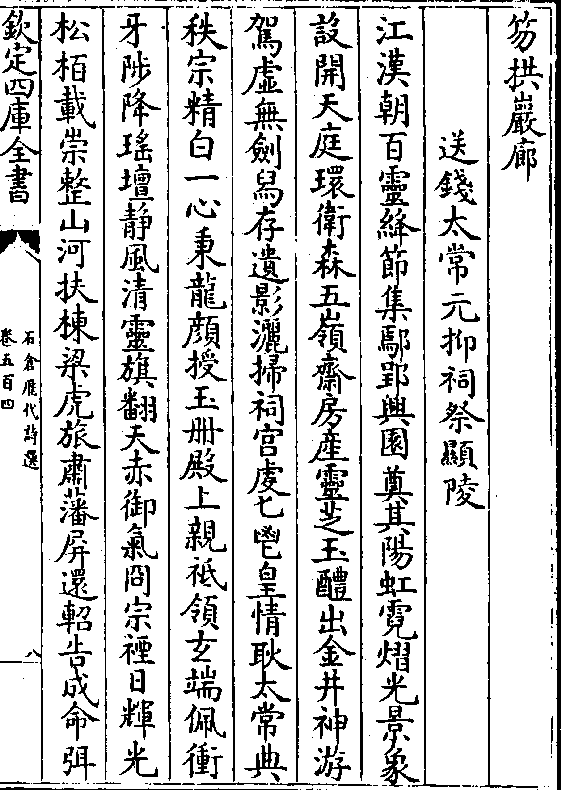 笏拱巖廊
送錢太常元抑祠祭顯陵
江漢朝百靈絳節集鄢郢興園奠其陽虹霓熠光景象
設開天庭環衛森五嶺齋房産靈芝玉醴出金井神游
駕虛無劍舄存遺影灑掃祠宫虔七鬯皇情耿太常典
秩宗精白一心秉龍顔授玉册殿上親祗領玄端佩衝
牙陟降瑤壇静風清靈旗翻天赤御氣冏宗禋日輝光
松栢載崇整山河扶棟梁虎旅肅藩屏還軺告成命弭
欽定四庫全書
石倉歴代詩選
卷五百四
八